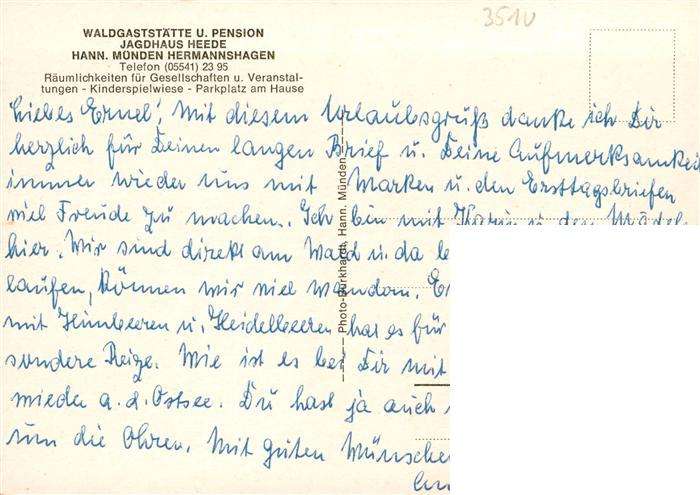 3510
WALDGASTSTÄTTE U. PENSION
JAGDHAUS HEEDE
HANN. MÜNDEN HERMANNSHAGEN
Telefon (05541) 23 95
Räumlichkeiten für Gesellschaften u. Veranstal-
tungen - Kinderspielwiese - Parkplatz am Hause
Liebes Ernel! Mit diesem Urlaubsgruß danke ich Dir
herzlich für Deinen langen Brief u. Deine Aufmerksamkeit
immer wieder uns mit Marken u. den Ersttagsbriefen
viel Freude zu machen. Ich bin mit Karin u. den Mädels
hier. Wir sind direkt am Wald u. da
laufen, können wir viel wandern.
mit Himbeeren u. Heidelbeeren hat es für
sondere Reize. Wie ist es bei Dir mit
wieder a. d. Ostsee. Du hast ja auch
um die Ohren. Mit guten Wünschen
Photo-Burkhardt, Hann. Münden